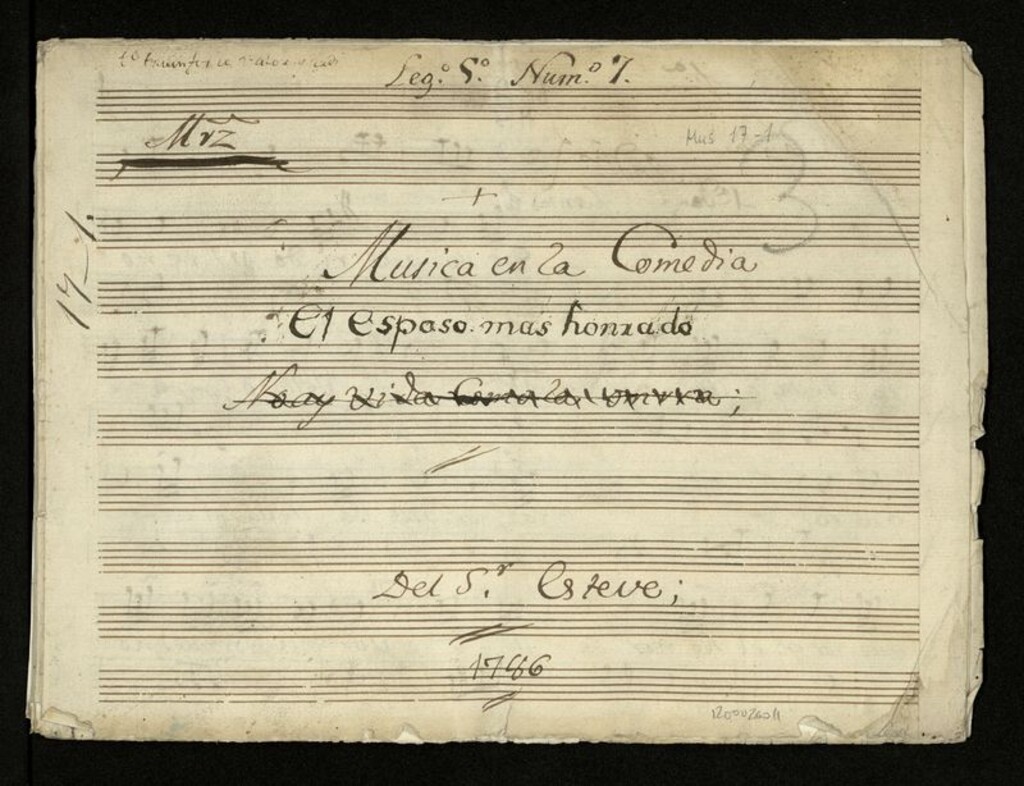 Leg.º 5.º Num.º 7.
Mrz
Mus 17-1
17_1.
+
Musica en la Comedia
El esposo mas honrado
No ay vida Como la
Del S.r Esteve;
1786